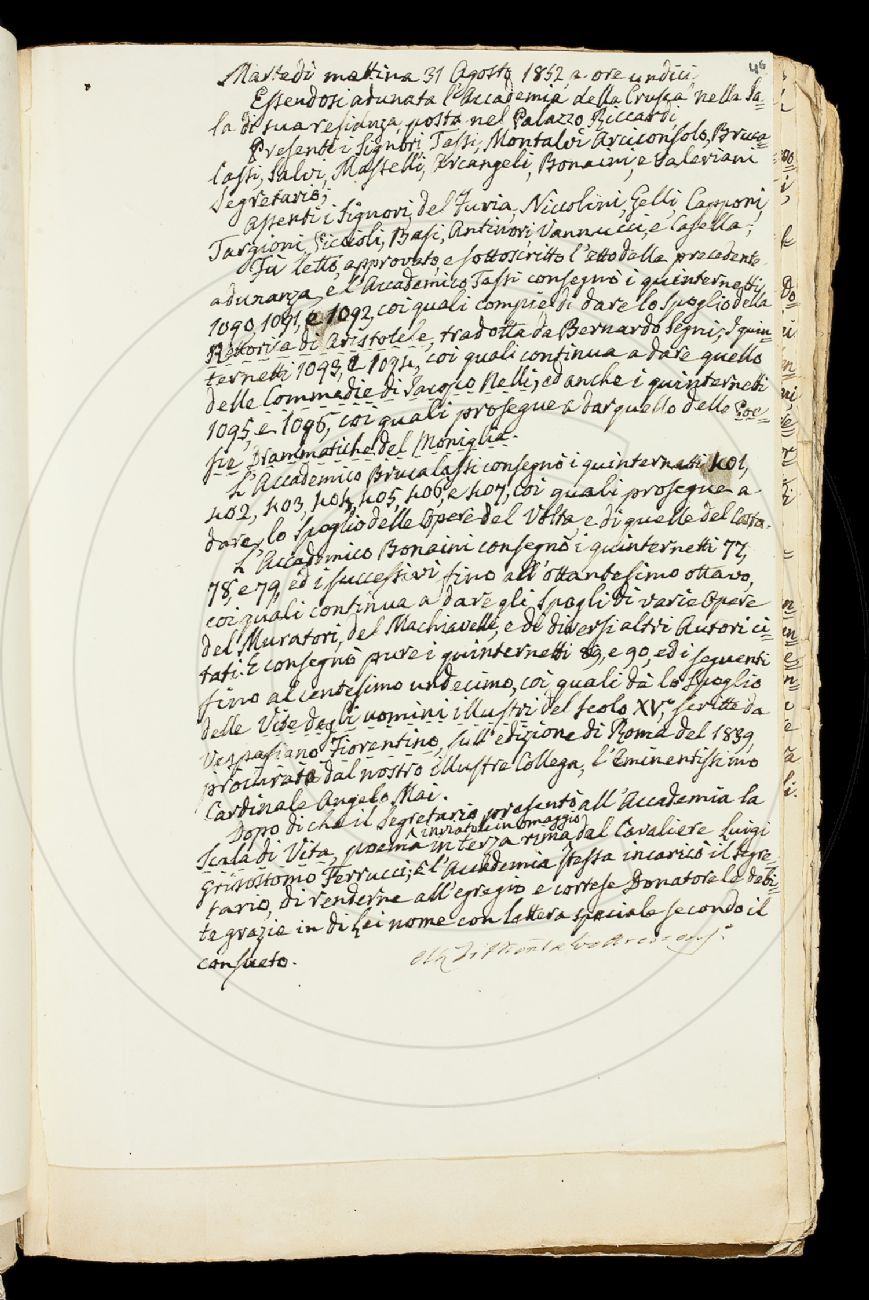 46
Martedì mattina 31 Agosto 1852 a ore undici.
Essendosi adunata l'Accademia della Crusca nella Sa=
la di sua residenza, posta nel Palazzo Riccardi,
Presenti i Signori Tassi, Montalvi Arciconsolo, Bruca=
lassi, Salvi, Mastelli, Arcangeli, Bonaini, e Valeriani
Segretario;
Assenti i Signori, del Furia, Niccolini, Gelli, Capponi,
Targioni, Piccioli, Basi, Antinori, Vannucci, e Casella;
Fù letto, approvato, e sottoscritto l'Atto della precedente
adunanza, e l'Accademico Tassi consegnò i quinternetti,
1090, 1091, e 1092, coi quali compie di dare lo Spoglio della
Rettorica di Aristotele, tradotta da Bernardo Segni; I quin=
ternetti 1093, e 1094, coi quali continua a dare quello
delle Commedie di Jacopo Nelli; ed anche i quinternetti
1095, e 1096, coi quali prosegue a dar quello delle Poe=
sie Drammatiche del Moniglia.
L'Accademico Brucalassi consegnò i quinternetti 401,
402, 403, 404, 405, 406, e 407, coi quali prosegue a
dare lo Spoglio delle Opere del Volta, e di quelle del
L'Accademico Bonaini consegnò i quinternetti 77,
78, e 79, ed i successivi, fino all'ottantesimo ottavo,
coi quali continua a dare gli Spogli di varie Opere
del Muratori, del Machiavelli, e di diversi altri Autori ci=
tati: E consegnò pure i quinternetti 89, e 90, ed i seguenti
fino al centesimo undecimo, coi quali dà lo Spoglio
delle Vite degli uomini illustri del secolo XV.°, scritte da
Vespasiano Fiorentino, sull'edizione di Roma del 1839,
procurata dal nostro illustre Collega, l'Eminentissimo
Cardinale Angelo Mai.
Dopo di che il Segretario presentò all'Accademia la
inviatole in omaggio
Scala di Vita, poema in terza rima dal Cavaliere Luigi
Grisostomo Ferrucci; E l'Accademia stessa incaricò il Segre=
tario, di renderne all'egregio e cortese Donatore le debi=
te grazie in di Lei nome con lettera speciale secondo il
consueto.